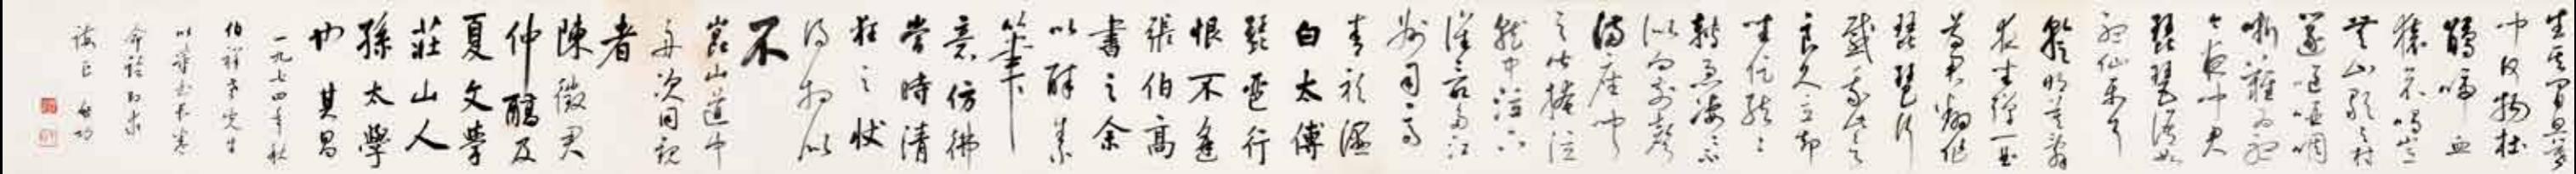 生其間旦暮
聞何物杜
鵑啼血
猿哀鳴豈
無山歌與村
笛嘔啞嘲
哳難為聽
今夜聞君
琵琶語如
聽仙樂耳
暫明莫辭
更坐彈一曲
為君翻作
琵琶行
感我此言
良久立却
坐促絃絃
轉急淒淒不
似向前聲
滿座聞
之皆掩泣
就中泣下
誰最多江
州司馬
青衫濕
白太傅
琵琶行
恨不逢
張伯高
書之余
以醉素
筆
意仿彿
當時清
狂之狀
得相似
不
崑山道中
舟次同觀
者
陳徵君
仲醇及
夏文學
莊山人
孫太學
也 其昌
一九七四年秋
伯祥先生
以長卷
命臨即求
誨正 啟功